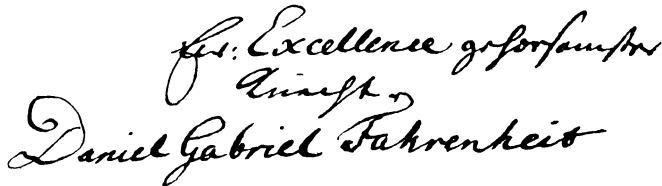 Ew: Excellence gehorsamster
Knecht
Daniel Gabriel Fahrenheit